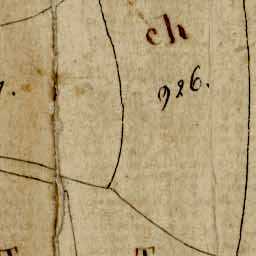 ch
926.